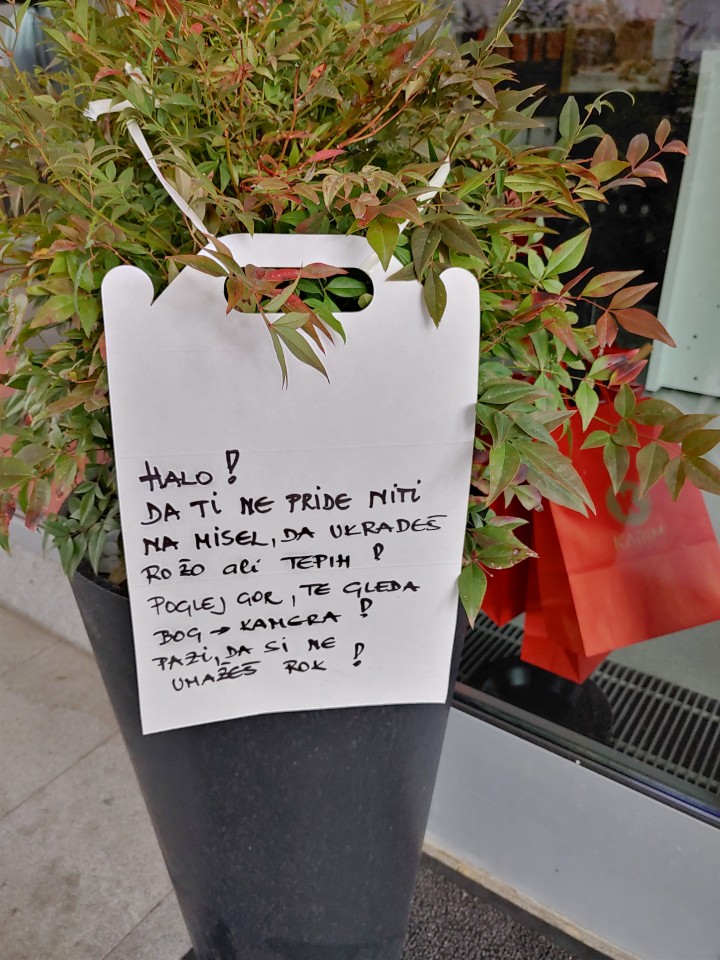 HALO!
DA TI NE PRIDE NITI
NA MISEL, DA UKRADEŠ
ROŽO ali TEPIH!
POGLEJ GOR, TE GLEDA
BOG → KAMERA!
PAZI, DA SI NE
UMAŽEŠ ROK!